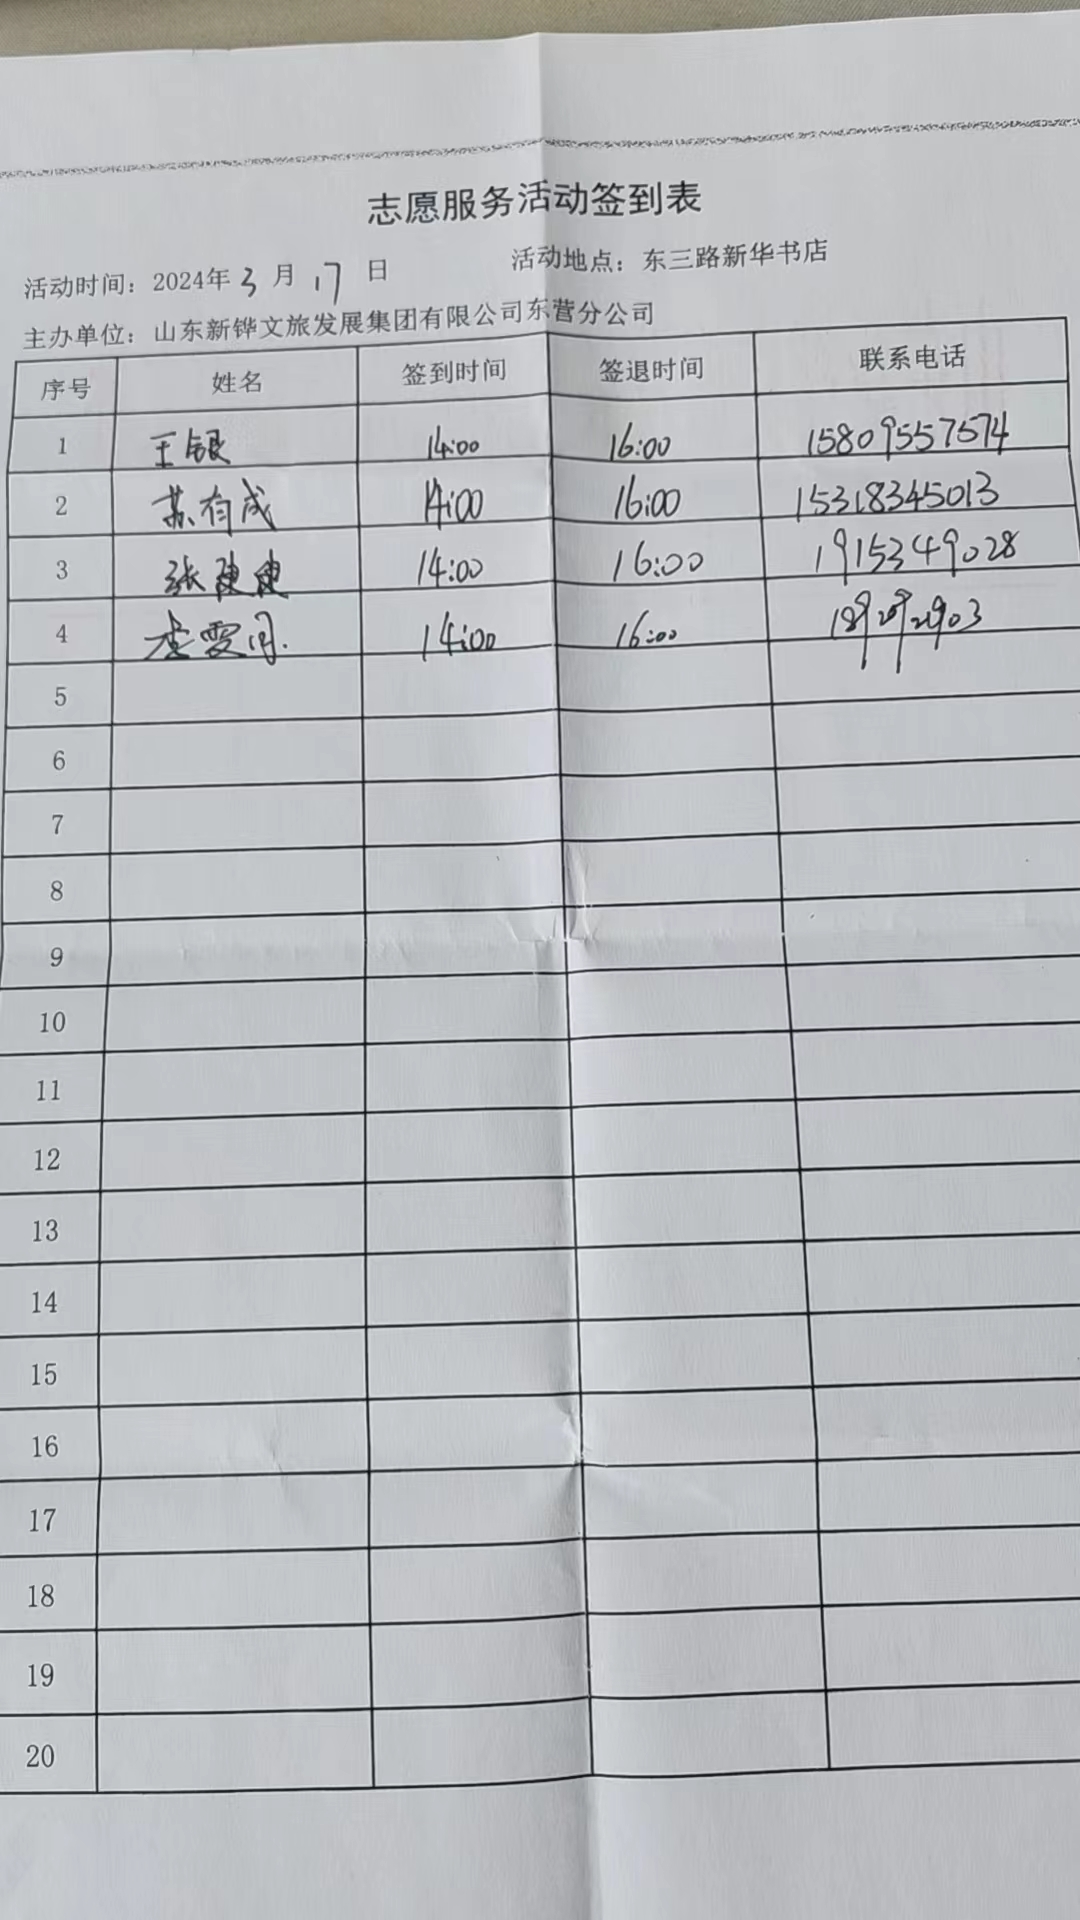 志愿服务活动签到表
活动时间：2024年3月17日 活动地点：东三路新华书店
主办单位：山东新铧文旅发展集团有限公司东营分公司
序号 姓名 签到时间 签退时间 联系电话
1 王银 14:00 16:00 15809557574
2 苏有成 14:00 16:00 15318345013
3 张 14:00 16:00 19153249028
4 李雯月 14:00 16:00
5
6
7
8
9
10
11
12
13
14
15
16
17
18
19
20